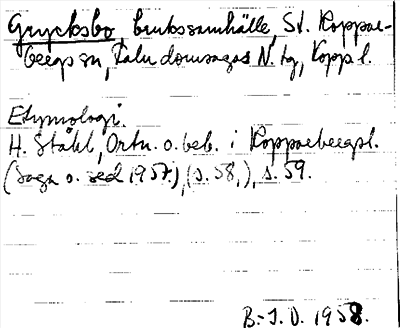 Grycksbo, brukssamhälle, St. Koppar-
bergs sn, Falu domsagas N. tg, Kopp l.
Etymologi.
H. Ståhl, Ortn. o. beb. i Kopparbergsl.
(Saga o. sed 1957), (s. 58,), s. 59.
B.-I. O. 1958.